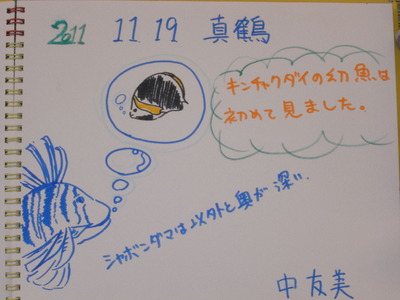 2011 11 19 真鶴
キンチャクダイの幼魚は
初めて見ました。
シャボンダマは以外と奥が深い.
中友美